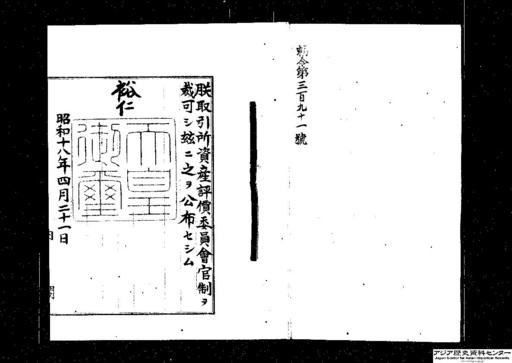 勅令第三百九十一號
朕取引所資産評價委員會官制ヲ
裁可シ玆ニ之ヲ公布セシム
裕仁
天皇御璽
昭和十八年四月二十一日
アジア歴史資料センター
Japan Center for Asian Historical Records